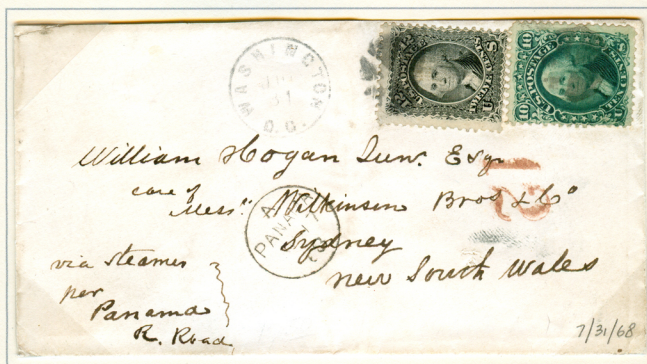 WASHINGTON
31
D.C.
U.S. POSTAGE
10 U.S. POSTAGE 10
William Hogan Junr. Esqr
care of
Messrs Wilkinson Bros & Co
12
PANAMA
Sydney
New South Wales
via steamer
per
Panama
R. Road
7/31/68